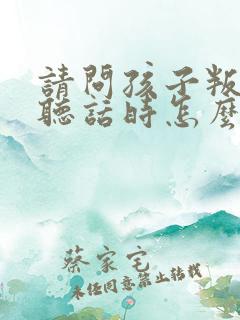 請問孩子叛
聽話時怎麼
蔡家宅
未經同意禁止轉載